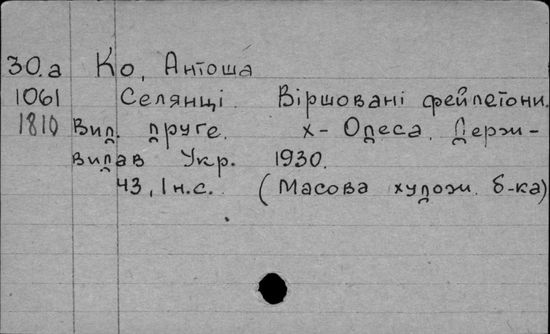 30.а Ко, Антоша
1061 Селянці. Віршовані фейлетони.
1810 Вид. друге. Х- Одеса. Держ-
видав Укр. 1930.
43, 1 н.с. (Масова худож. б-ка)